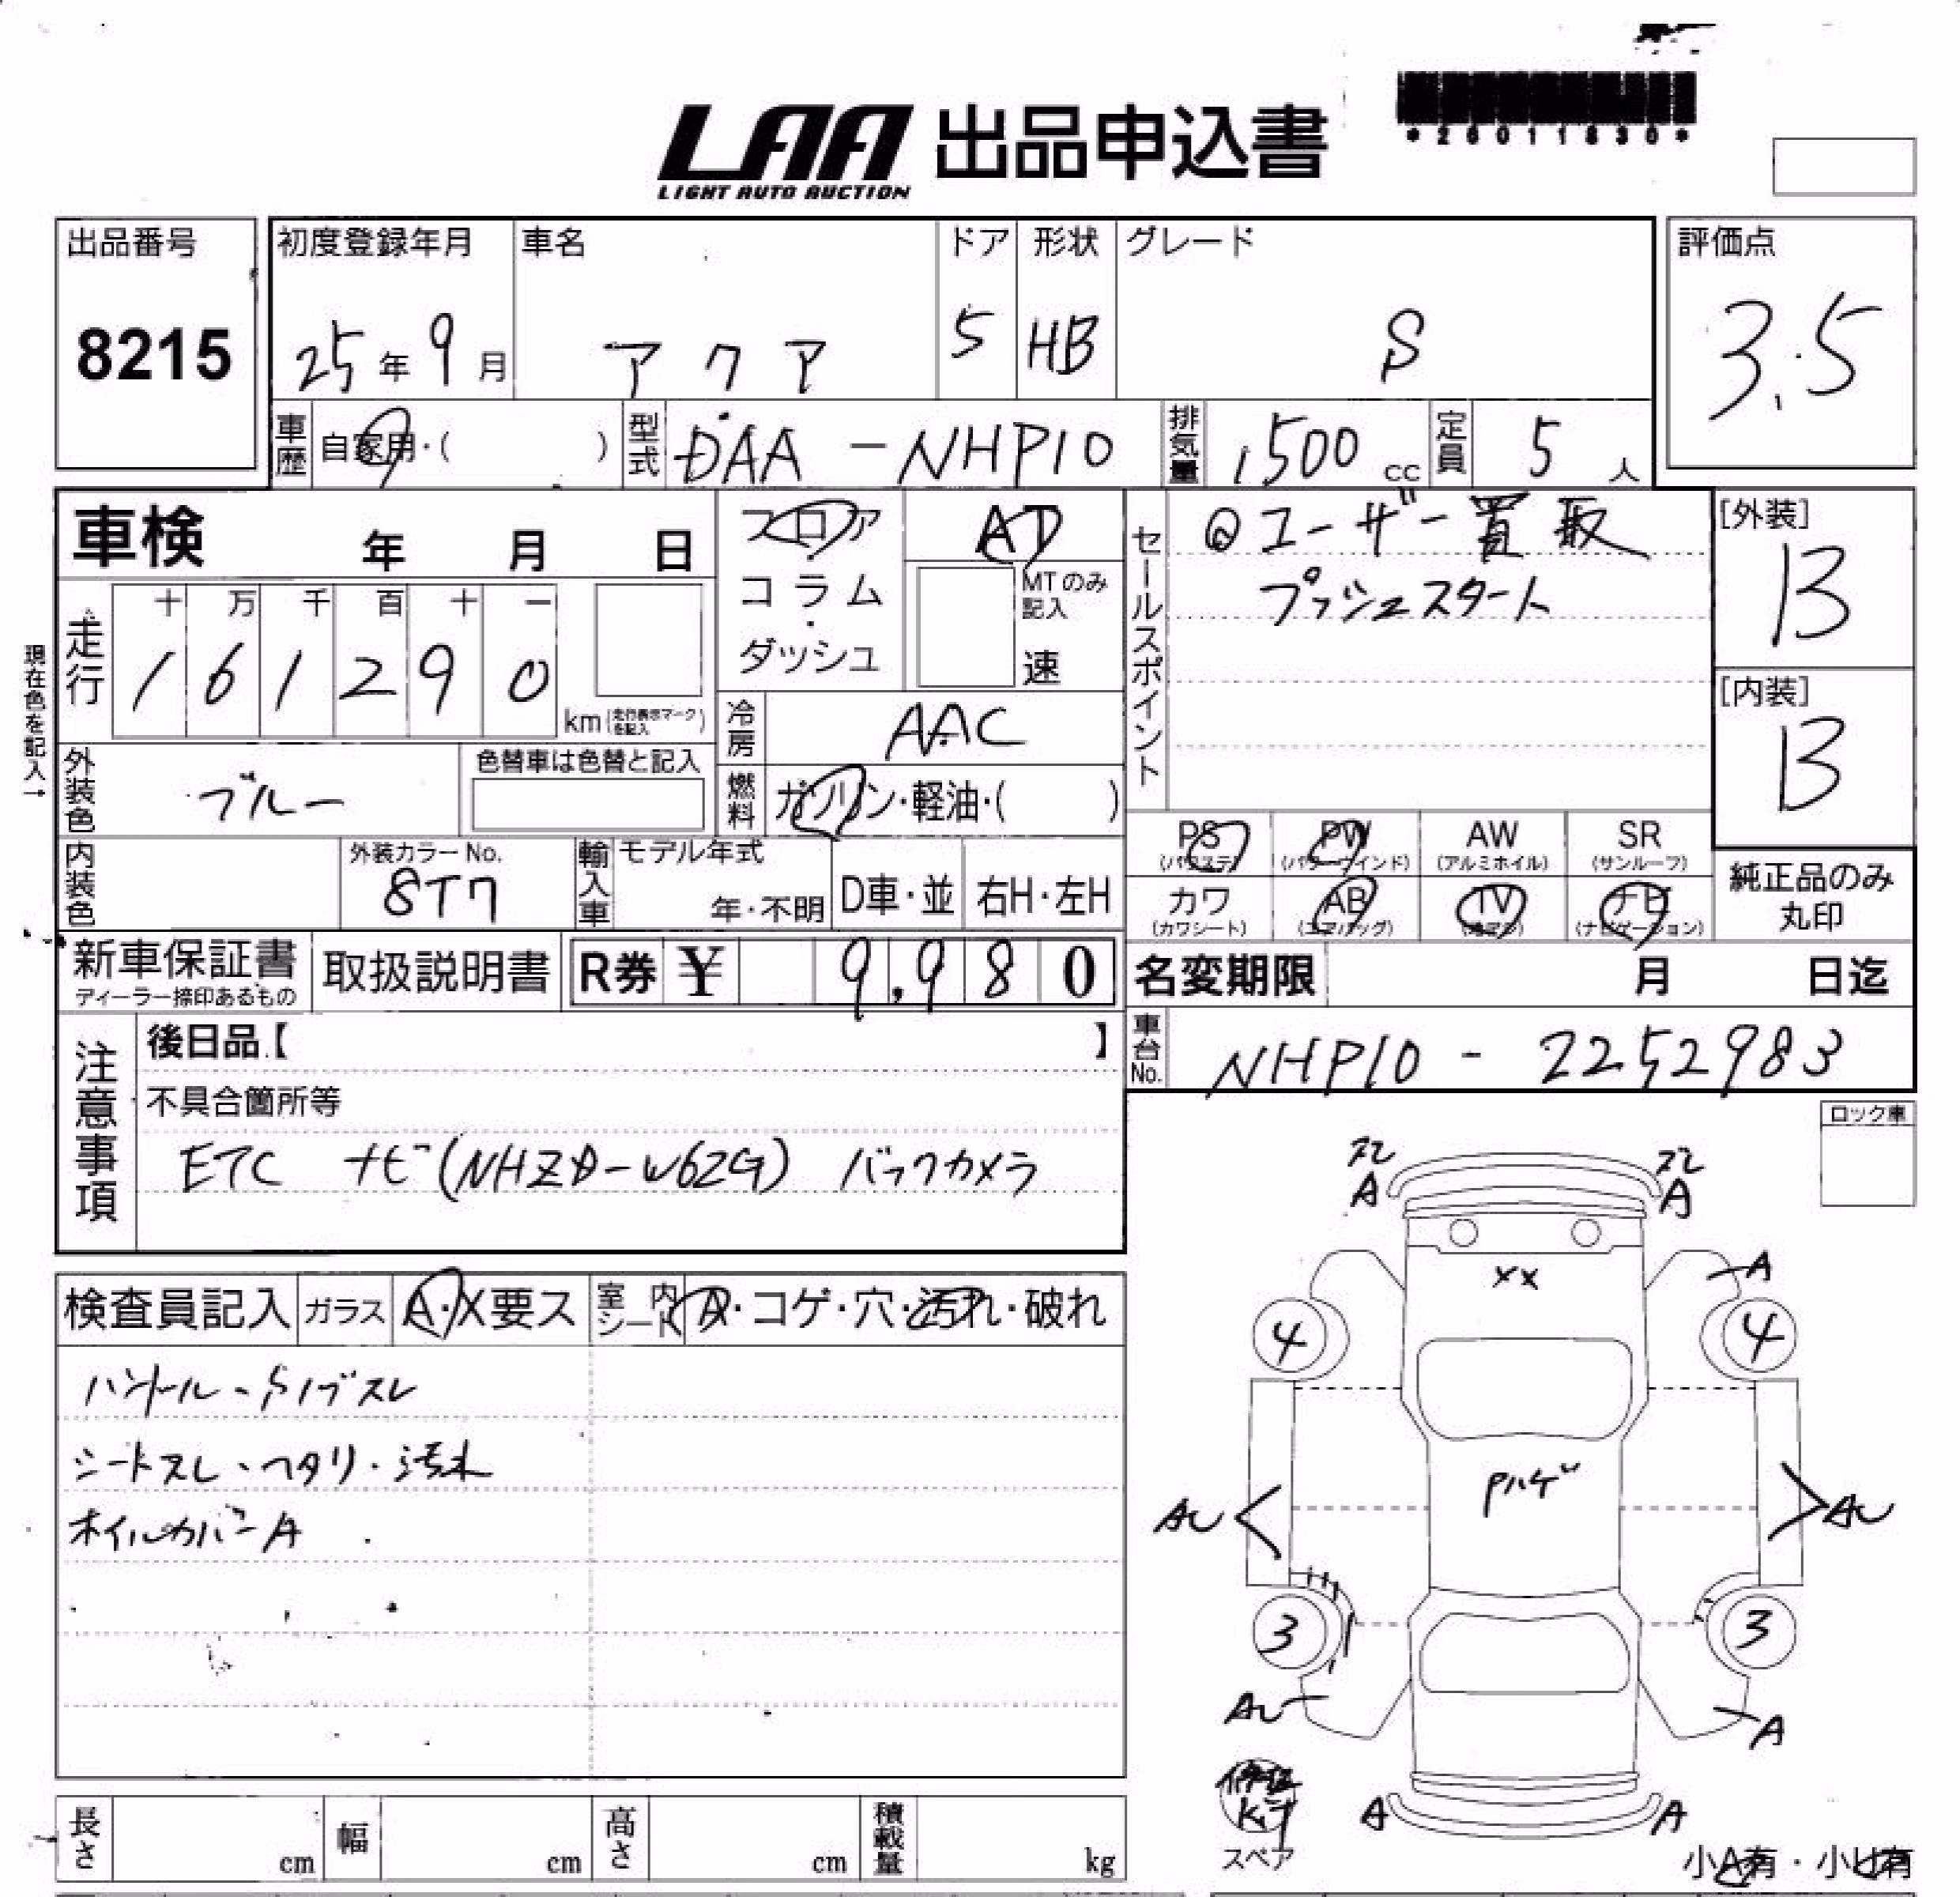 LAA 出品申込書
LIGHT AUTO AUCTION
出品番号
8215
初度登録年月
25年9月
車名
アクア
ドア
5
形状
HB
グレード
S
評価点
3.5
車歴
自家用・( )
型式
DAA-NHP10
排気量
1500cc
定員
5人
車検 年 月 日
現在色を記入→
走行
十 万 千 百 十 一
1 6 1 2 9 0
km(走行表示マークを記入)
フロア
コラム
ダッシュ
AT
MTのみ記入
速
冷房
AAC
燃料
ガソリン・軽油・( )
外装色
ブルー
色替車は色替と記入
内装色
外装カラーNo.
8T7
輸入車
モデル年式
年・不明
D車・並
右H・左H
セールスポイント
ユーザー買取
プッシュスタート
[外装]
B
[内装]
B
PS
(パワステ)
PW
(パワーウインド)
AW
(アルミホイル)
SR
(サンルーフ)
カワ
(カワシート)
AB
(エアバッグ)
TV
ナビ
(ナビゲーション)
純正品のみ
丸印
新車保証書
ディーラー捺印あるもの
取扱説明書
R券 ¥ 9,980
名変期限 月 日迄
車台No.
NHP10-2252983
注意事項
後日品【 】
不具合箇所等
ETC ナビ(NHZD-W62G) バックカメラ
ロック車
検査員記入
ガラス
A・X要ス
室内シート
A・コゲ・穴・汚れ・破れ
ハンドル・ドノブスレ
シートスレ・ヘタリ・汚れ
ホイルカバーA
スレ
A
スレ
A
XX
A
4
4
Pハゲ
AU
AU
3
3
AU
A
A
A
修理
キット
スペア
小A有・小U有
長さ cm
幅 cm
高さ cm
積載量 kg